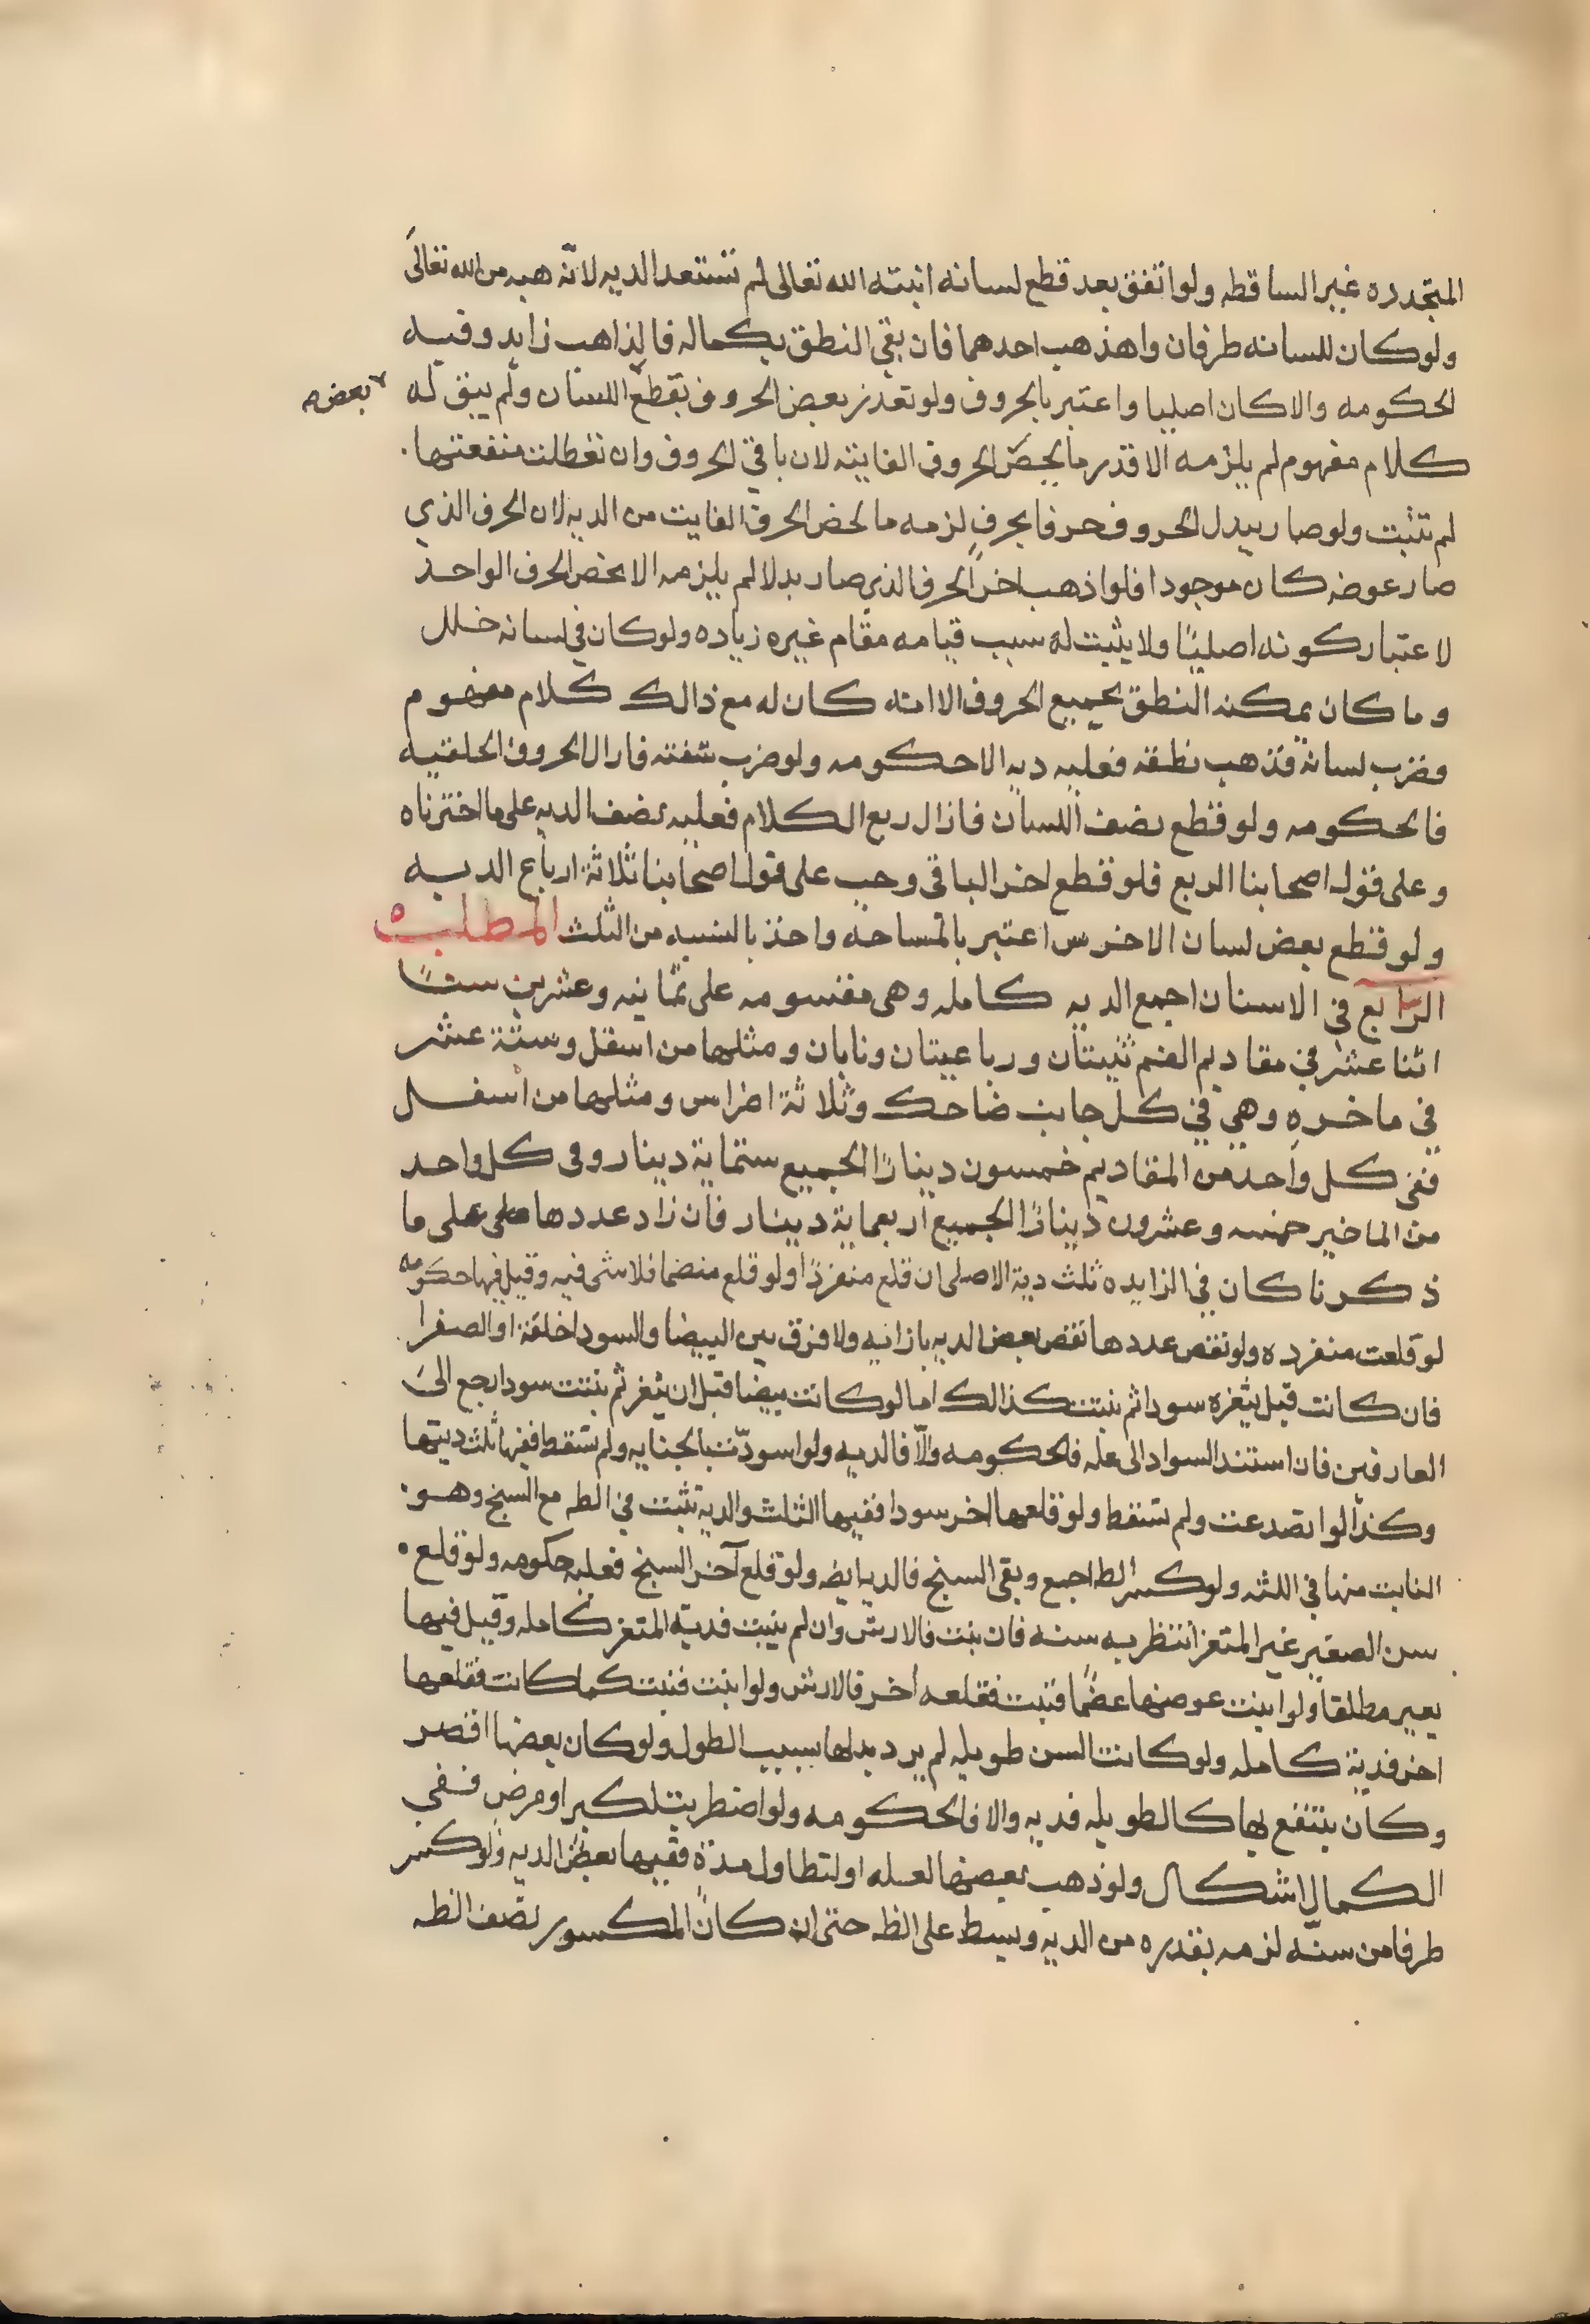 المتجدده غير الساقطه ولو اتفق بعد قطع لسانه انبته الله تعالى لم تستعد الديه لانه هبه من الله تعالى
ولو كان للسانه طرفان واهذهب احدهما فان بقي النطق بكماله فالذاهب زايد وفيه
الحكومه والا كان اصليا واعتبر بالحروف ولو تعذر بعض الحروف بقطع اللسان ولم يبق له
بعض
كلام مفهوم لم يلزمه الا قدر ما يخص الحروف الفايته لان باقي الحروف وان تعطلت منفعتها
لم تثبت ولو صار يبدل الحروف حرفا بحرف لزمه ما يخص الحرف الفايت من الديه لان الحرف الذي
صار عوضه كان موجودا فلو اذهب اخر الحرف الذي صار بدلا لم يلزمه الا يخص الحرف الواحد
لاعتبار كونه اصليا ولا يثبت له سبب قيامه مقام غيره زياده ولو كان في لسانه خلل
وما كان يمكنه النطق بجميع الحروف الا انه كان له مع ذالك كلام مفهوم
فضرب لسانه فذهب نطقه فعليه ديه الا حكومه ولو ضرب شفته فازال الحروف الحلقيه
فالحكومه ولو قطع نصف اللسان فازال ربع الكلام فعليه نصف الديه على ما اخترناه
وعلى قول اصحابنا الربع فلو قطع اخر الباقي وجب على قول اصحابنا ثلاثة ارباع الديه
ولو قطع بعض لسان الاخرس اعتبر بالمساحه واخذ بالنسبه من الثلث المطلب
الرابع في الاسنان اجمع الديه كامله وهي مقسومه على ثمانيه وعشرين سنا
اثنا عشر في مقاديم الفم ثنيتان ورباعيتان ونابان ومثلها من اسفل وستة عشر
في ماخره وهي في كل جانب ضاحك وثلاثة اضراس ومثلها من اسفل
ففي كل واحد من المقاديم خمسون دينارا الجميع ستماية دينار وفى كل واحد
من الماخير خمسه وعشرون دينارا الجميع اربعماية دينار فان زاد عددها على ما
ذكرنا كان في الزايده ثلث دية الاصلى ان قلع منفردا ولو قلع منضما فلا شى فيه وقيل فيها حكومه
لو قلعت منفرده ولو نقص عددها نقص بعض الديه بازائه ولا فرق بين البيضا والسودا خلقة او الصفرا
فان كانت قبل يثغره سودا ثم نبتت كذالك اما لو كانت بيضا قبل ان يثغر ثم نبتت سودا رجع الى
العارفين فان استند السواد الى عله فالحكومه والا فالديه ولو اسودت بالجنايه ولم تسقط ففيها ثلث ديتها
وكذا لو انصدعت ولم تسقط ولو قلعها اخر سودا ففيها الثلث والدية تثبت في الطه مع السنخ وهو
النابت منها في اللثه ولو كسر الط اجمع وبقى السنخ فالديه ايضه ولو قلع آخر السنخ فعليه حكومه ولو قلع
سن الصغير غير المتغر انتظر به سنه فان نبت فالارش وان لم ينبت فدية المتغر كامله وقيل فيها
بعير مطلقا ولو انبت عوضها عضما فنبت فقلعه اخر فالارش ولو انبت فنبت كما كانت فقلعها
اخر فدية كامله ولو كانت السن طويله لم يرد بدلها بسبب الطول ولو كان بعضها اقصر
وكان ينتفع بها كالطويله فديه والا فالحكومه ولو اضطربت لكبر او مرض ففي
الكمال اشكال ولو ذهب بعضها لعله او لتطاول مدة ففيها بعض الديه ولو كسر
طرفا من سنه لزمه بقدره من الديه وبسط على الظه حتى ان كان المكسور نصف الظه